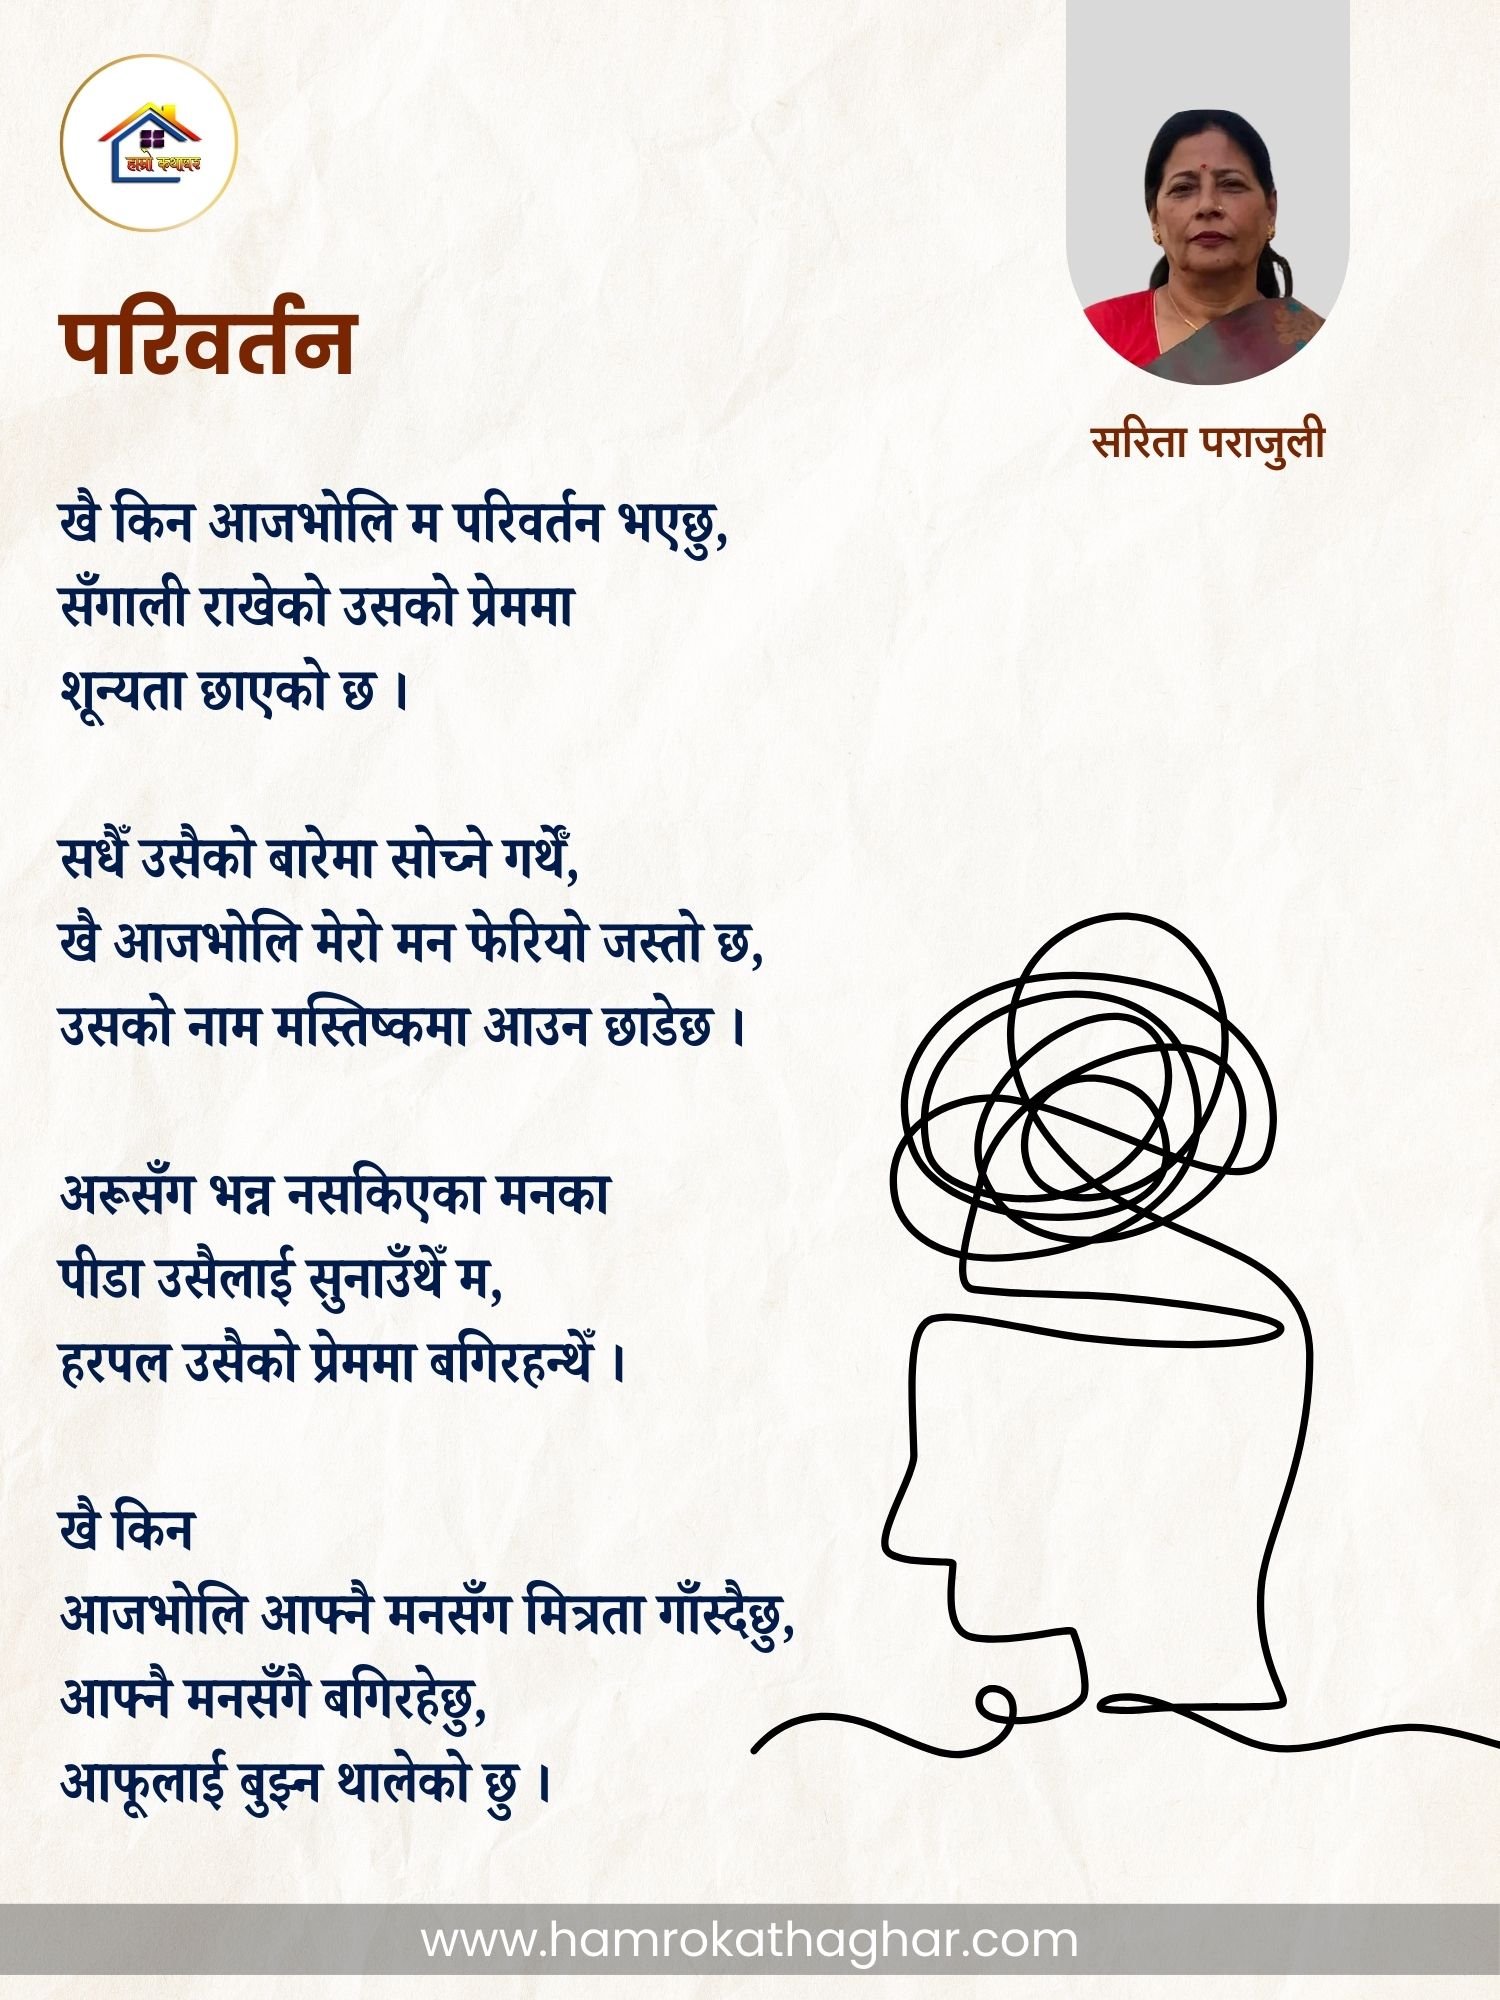 हाम्रो कथाघर
परिवर्तन
सरिता पराजुली
खै किन आजभोलि म परिवर्तन भएछु,
सँगाली राखेको उसको प्रेममा
शून्यता छाएको छ ।
सधैँ उसैको बारेमा सोच्ने गर्थेँ,
खै आजभोलि मेरो मन फेरियो जस्तो छ,
उसको नाम मस्तिष्कमा आउन छाडेछ ।
अरूसँग भन्न नसकिएका मनका
पीडा उसैलाई सुनाउँथेँ म,
हरपल उसैको प्रेममा बगिरहन्थेँ ।
खै किन
आजभोलि आफ्नै मनसँग मित्रता गाँस्दैछु,
आफ्नै मनसँगै बगिरहेछु,
आफूलाई बुझ्न थालेको छु ।
www.hamrokathaghar.com